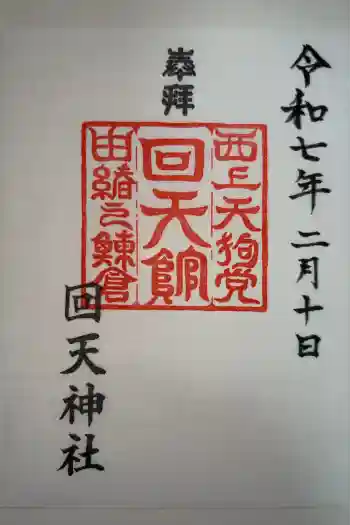 令和七年二月十日
奉拝
水戸天狗党
回天館
由緒之鰊倉
回天神社